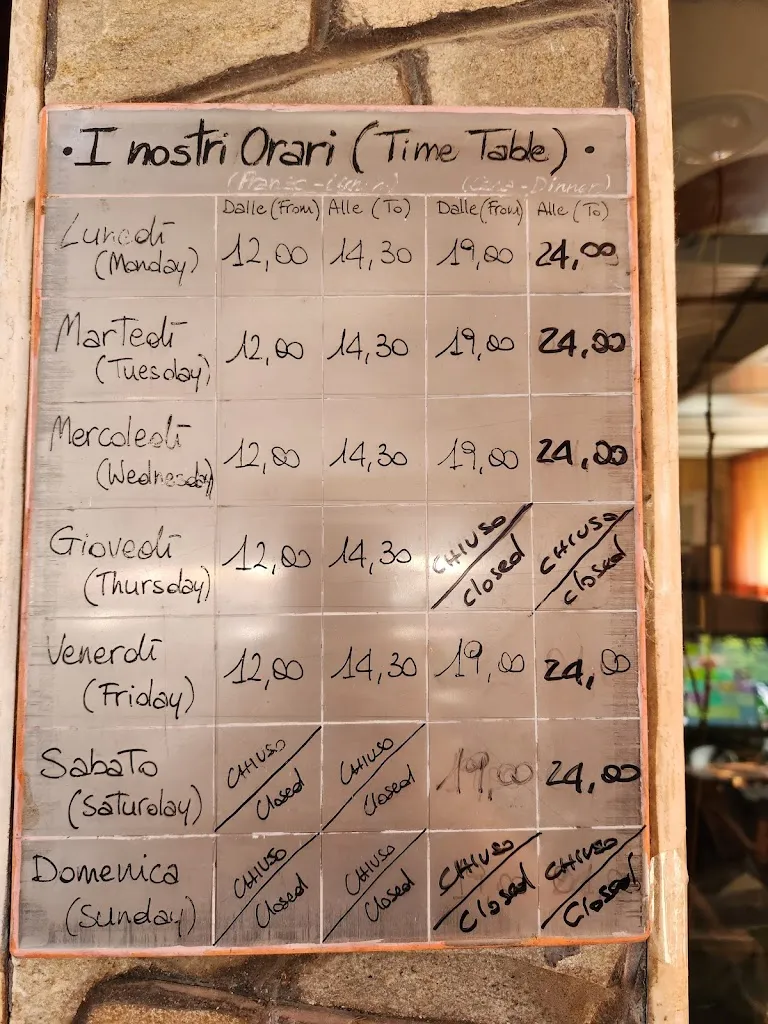 • I nostri Orari (Time Table) •
(Cena - Dinner)
Dalle (From) Alle (To) Dalle (From) Alle (To)
Lunedì 12,00 14,30 19,00 24,00
(Monday)
Martedì 12,00 14,30 19,00 24,00
(Tuesday)
Mercoledì 12,00 14,30 19,00 24,00
(Wednesday)
Giovedì 12,00 14,30 CHIUSO CHIUSO
(Thursday) Closed Closed
Venerdì 12,00 14,30 19,00 24,00
(Friday)
Sabato CHIUSO CHIUSO 19,00 24,00
(Saturday) Closed Closed
Domenica CHIUSO CHIUSO CHIUSO CHIUSO
(Sunday) Closed Closed Closed Closed